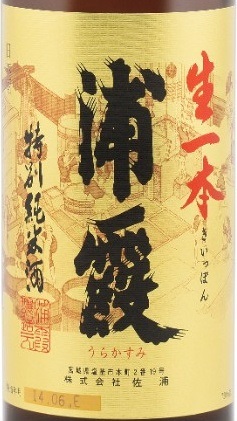 生一本
きいっぽん
浦霞
うらかすみ
特別純米酒
宮城県塩釜市本町2番19号
株式会社 佐浦
14.06.E